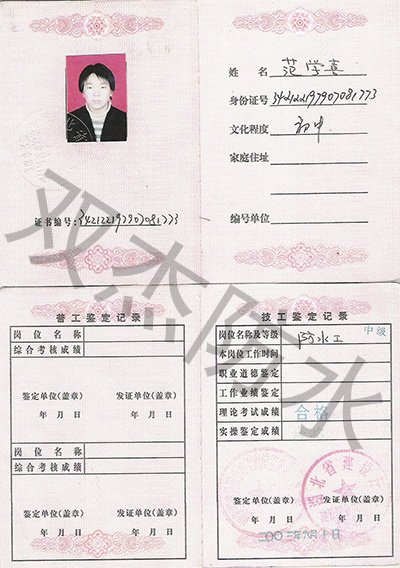 姓 名 范学喜
身份证号 342122197907081773
文化程度 初中
家庭住址
编号单位
证书编号: 342122197907081773
双杰防水
普工鉴定记录
岗位名称
综合考核成绩
鉴定单位(盖章) 发证单位(盖章)
年 月 日 年 月 日
岗位名称
综合考核成绩
鉴定单位(盖章) 发证单位(盖章)
年 月 日 年 月 日
技工鉴定记录
岗位名称及等级 防水工 中级
本岗位工作时间
职业道德鉴定
工作业绩鉴定
理论考试成绩 合格
实操鉴定成绩
北省建
鉴定单位(盖章) 发证单位(盖章)
年 月 日
二00三年六月